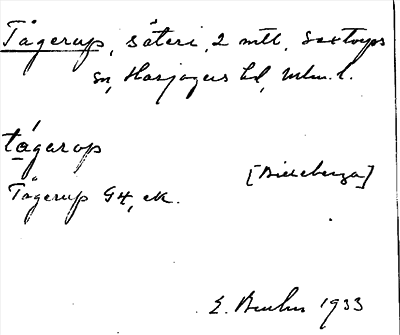 Tågerup, säteri, 2 mtl, Saxtorps
sn, Harjagers hd, Mlm. l.
tágarop
[Billeberga]
Tågerup G4, ek.
E. 1933